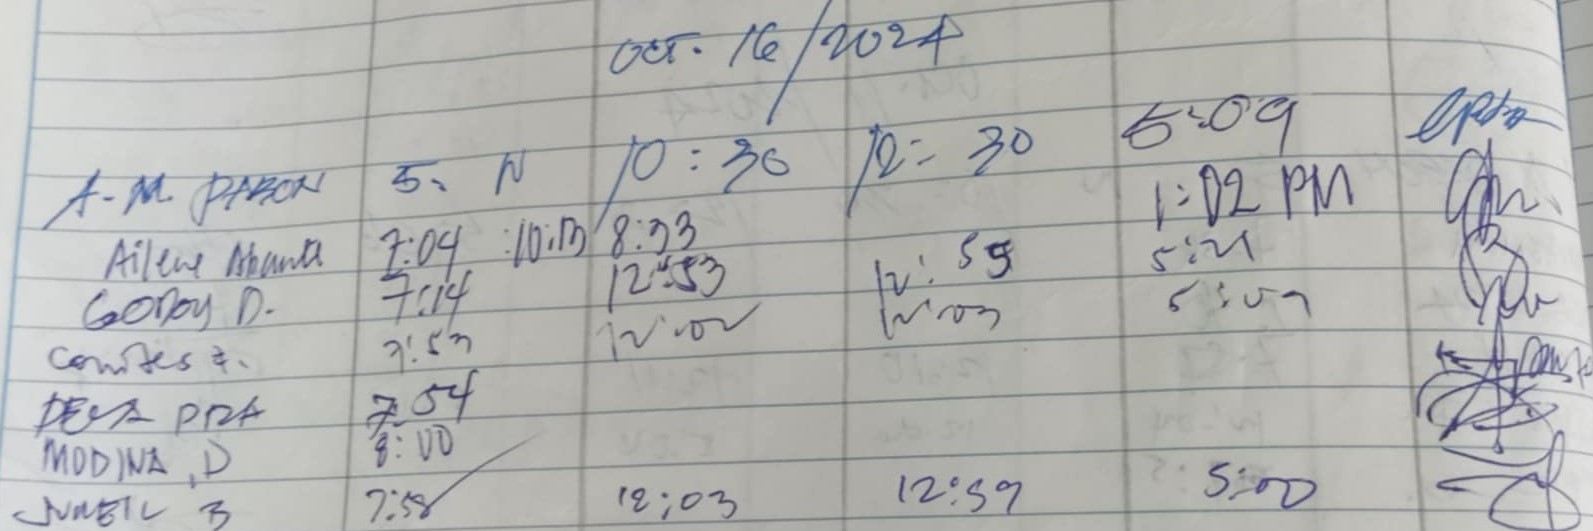 Oct. 16/2024
A-M. PABON 5. N 10:30 12:30 5:09
Ailene 7:04 :10:13 8:33 1:02 PM
GODOY D. 7:14 12:53 12:55 5:21
7:53 12:02 12:03 5:07
DELA PEA 7 54
MODINA, D 8:00
JUNEIL B 7:58 12:03 12:59 5:00